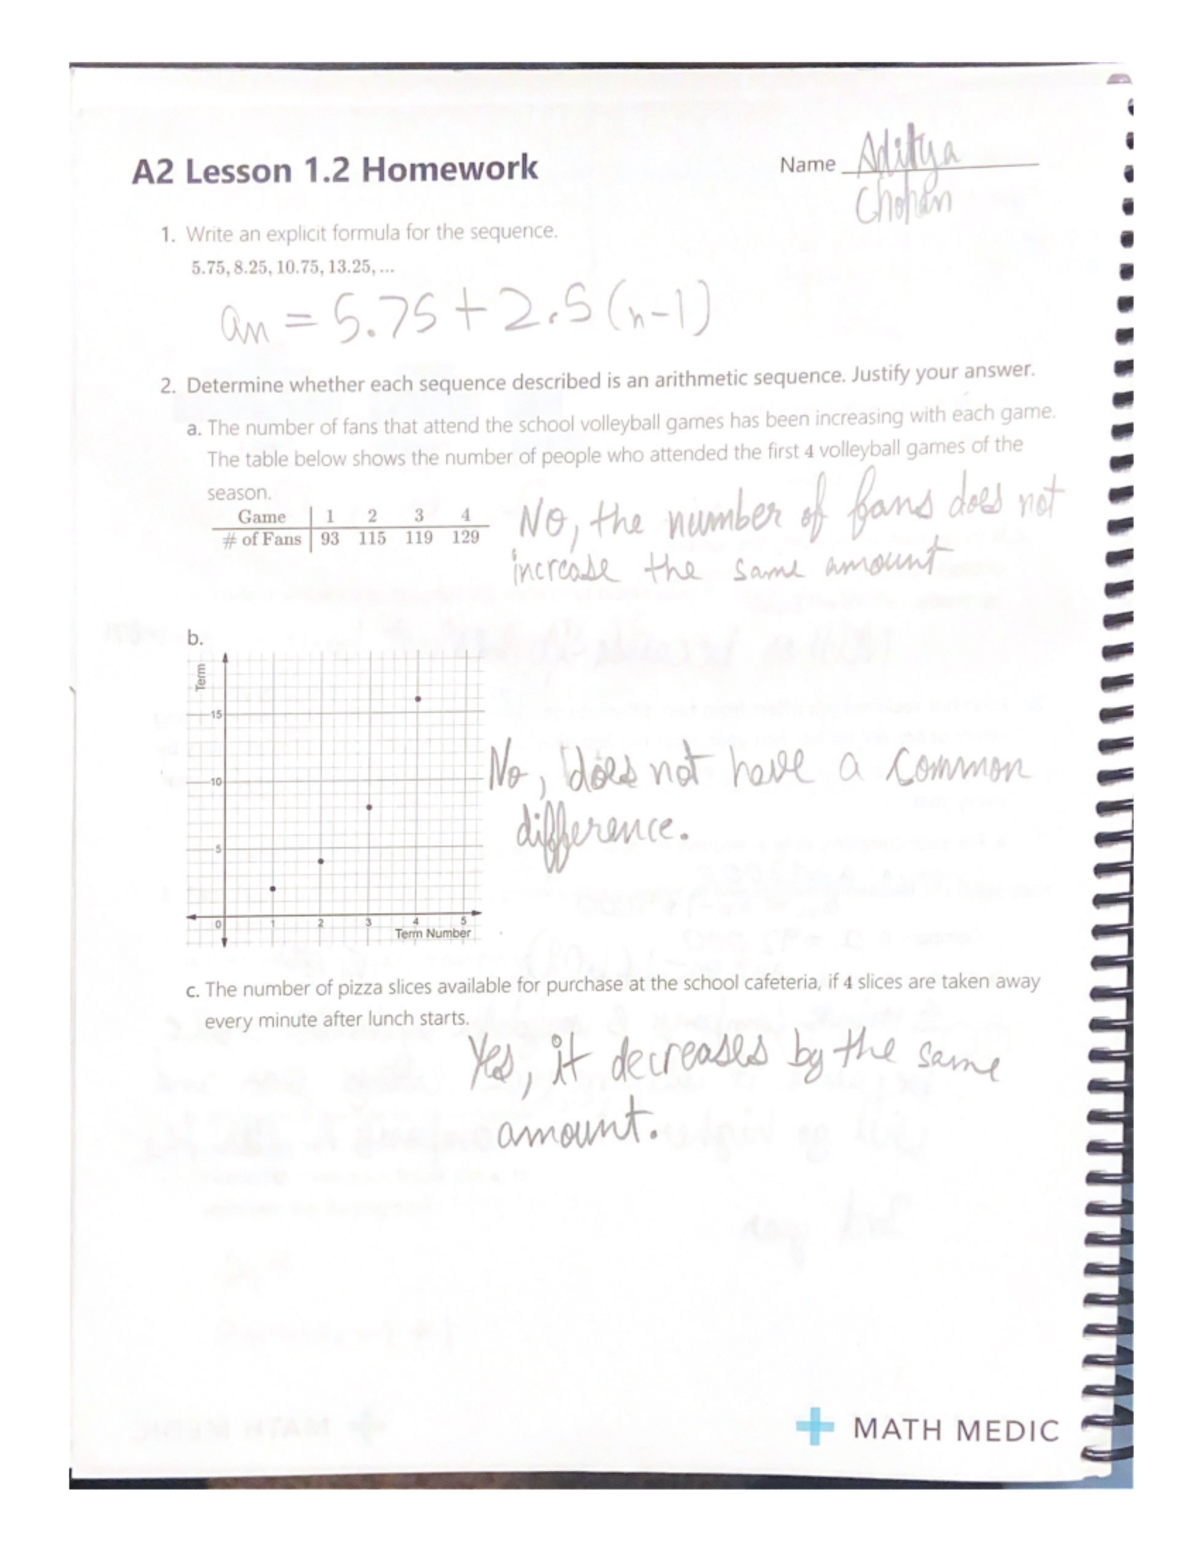 A2 Lesson 1.2 Homework
Name Aditya
Chohan
1. Write an explicit formula for the sequence.
5.75, 8.25, 10.75, 13.25, ...
an = 5.75 + 2.5 (n-1)
2. Determine whether each sequence described is an arithmetic sequence. Justify your answer.
a. The number of fans that attend the school volleyball games has been increasing with each game.
The table below shows the number of people who attended the first 4 volleyball games of the
season.
Game 1 2 3 4
# of Fans 93 115 119 129
No, the number of fans does not
increase the same amount
b.
Term
15
10
5
0 1 2 3 4 5
Term Number
No, does not have a common
difference.
c. The number of pizza slices available for purchase at the school cafeteria, if 4 slices are taken away
every minute after lunch starts.
Yes, it decreases by the same
amount.
MATH MEDIC